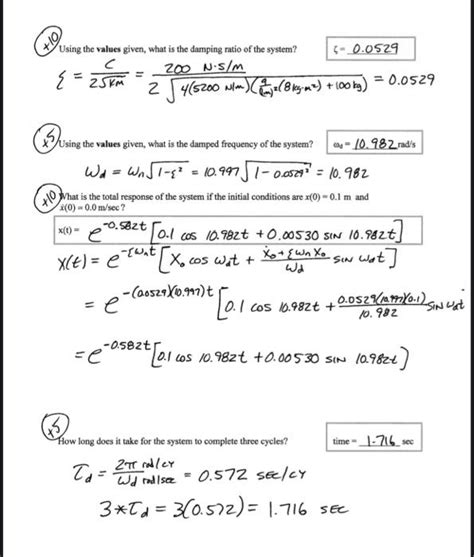 +10 Using the values given, what is the damping ratio of the system? ζ = 0.0529
ξ = C / 2√km = 200 N·s/m / 2√4(5200 N/m)( )²(8 kg·m²) + 100 kg) = 0.0529
+5 Using the values given, what is the damped frequency of the system? ωd = 10.982 rad/s
ωd = ωn√1-ξ² = 10.997√1-0.0529² = 10.982
+10 What is the total response of the system if the initial conditions are x(0) = 0.1 m and
ẋ(0) = 0.0 m/sec ?
x(t) = e^-0.582t [0.1 cos 10.982t + 0.00530 sin 10.982t]
x(t) = e^-ξωnt [x₀ cos ωdt + ẋ₀ + ξωn x₀ / ωd sin ωdt]
= e^-(0.0529)(10.997)t [0.1 cos 10.982t + 0.0529(10.997)(0.1) / 10.982 sin ωdt
= e^-0.582t [0.1 cos 10.982t + 0.00530 sin 10.982t)
+5
How long does it take for the system to complete three cycles? time = 1.716 sec
τd = 2π rad/cy / ωd rad/sec = 0.572 sec/cy
3*τd = 3(0.572) = 1.716 sec